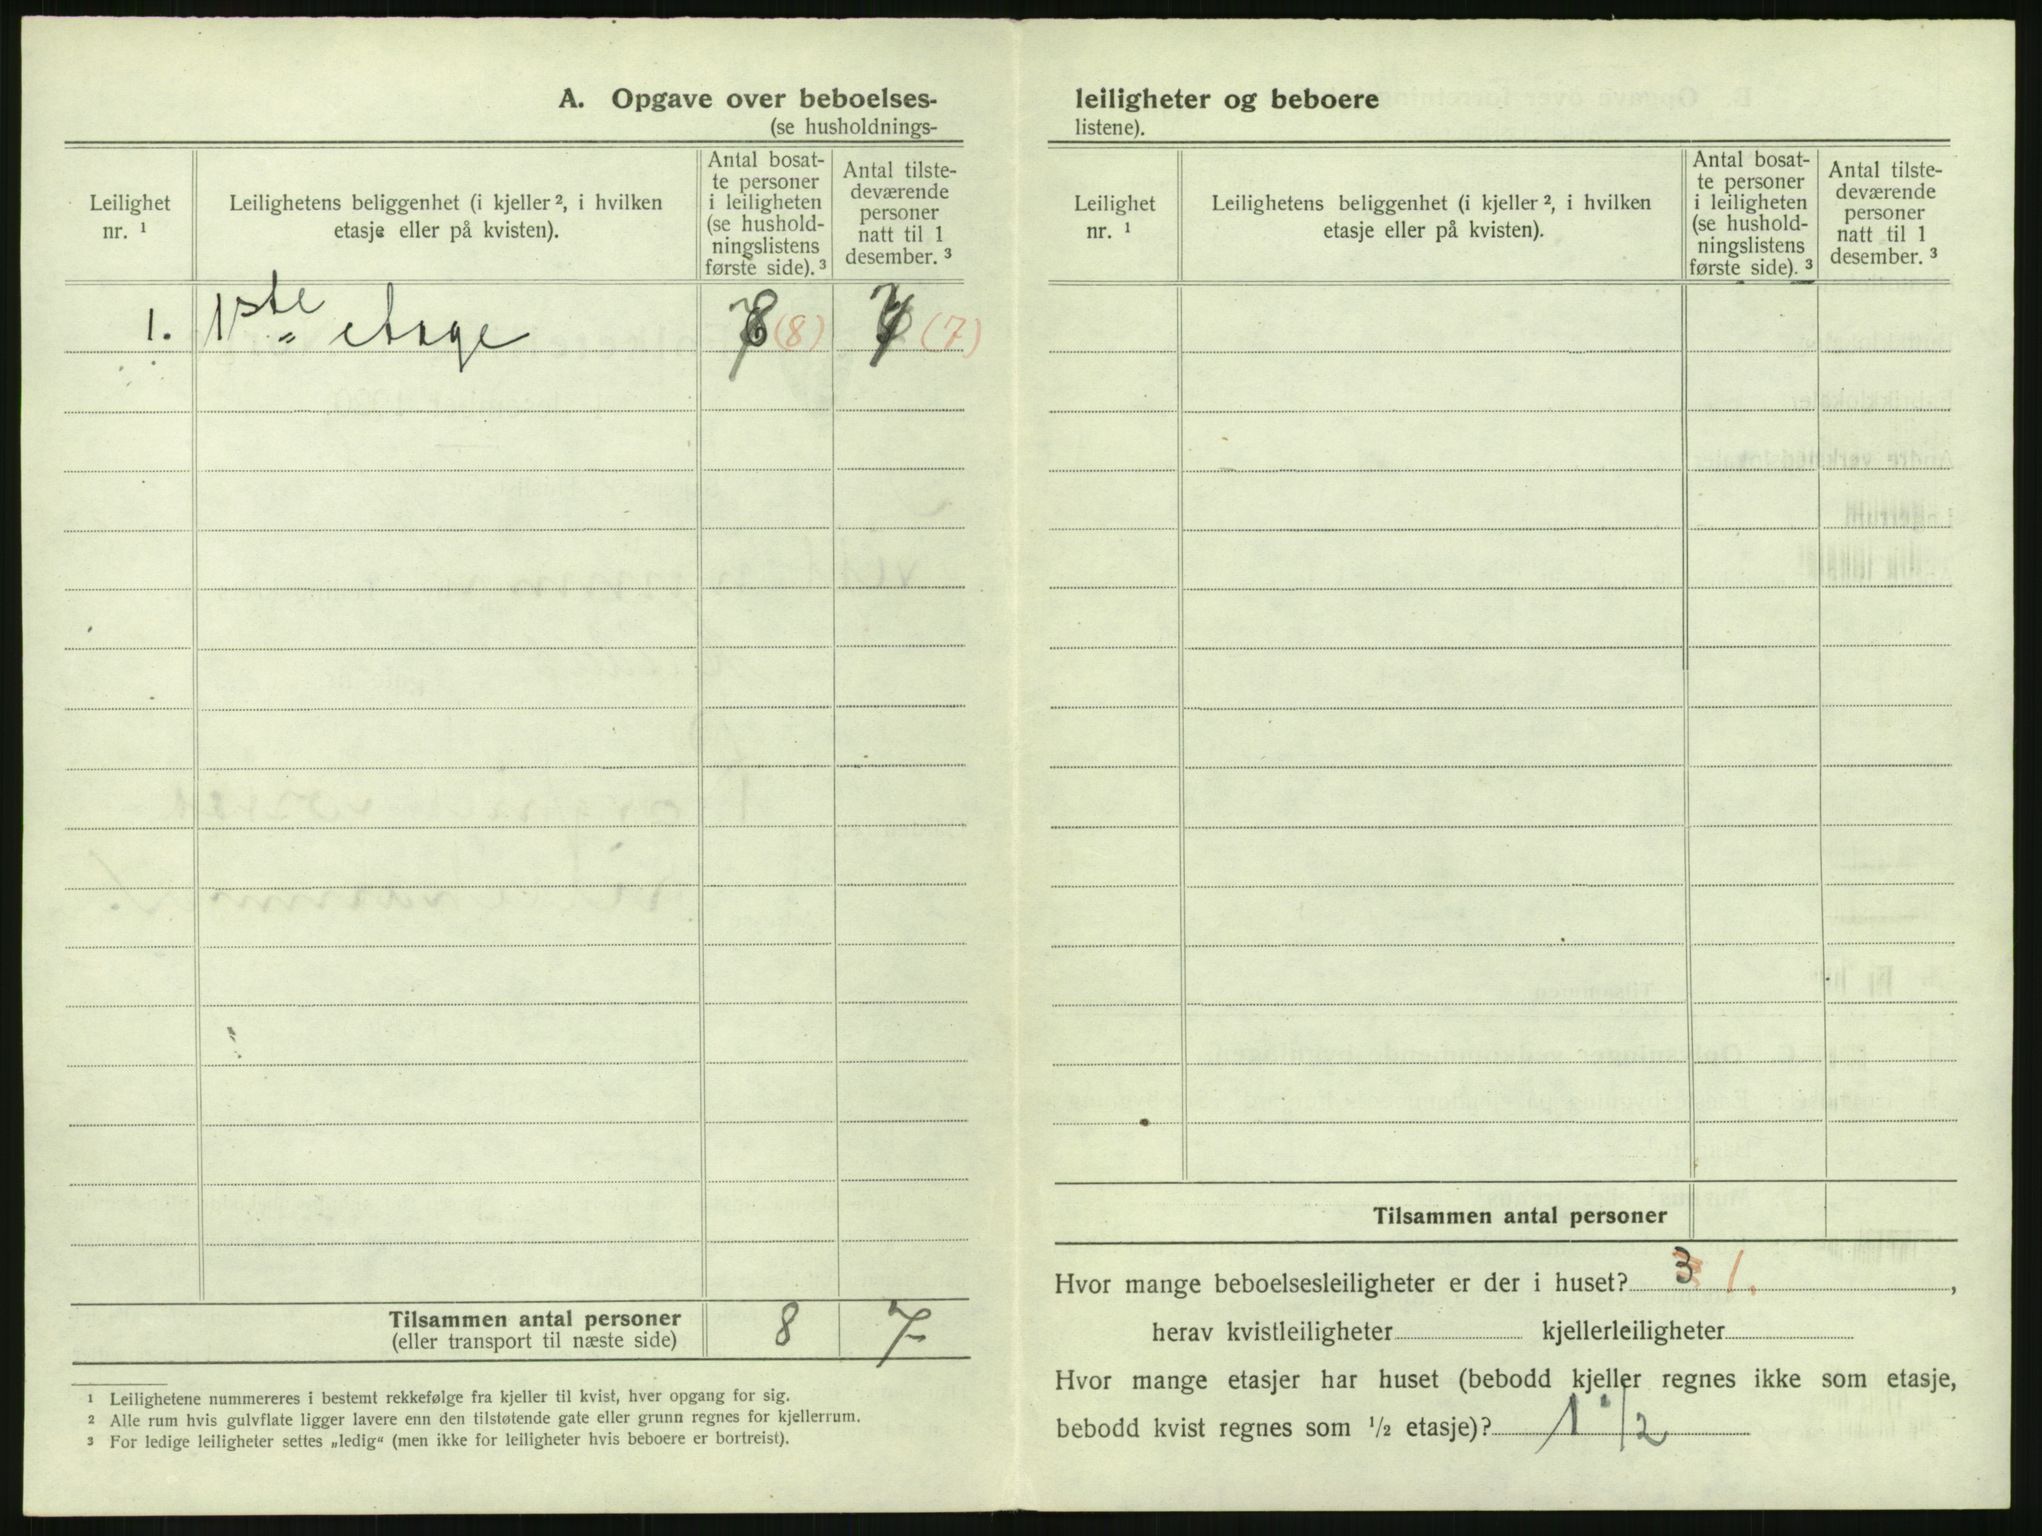 A. Opgave over beboelses-
(se husholdnings-
Leilighet
nr. ¹
Leilighetens beliggenhet (i kjeller ², i hvilken
etasje eller på kvisten).
Antal bosat-
te personer
i leiligheten
(se hushold-
ningslistens
første side). ³
Antal tilste-
deværende
personer
natt til 1
desember. ³
1. 1ste etage (8) (7)
Tilsammen antal personer
(eller transport til næste side) 8 7
¹ Leilighetene nummereres i bestemt rekkefølge fra kjeller til kvist, hver opgang for sig.
² Alle rum hvis gulvflate ligger lavere enn den tilstøtende gate eller grunn regnes for kjellerrum.
³ For ledige leiligheter settes „ledig“ (men ikke for leiligheter hvis beboere er bortreist).
leiligheter og beboere
listene).
Leilighet
nr. ¹
Leilighetens beliggenhet (i kjeller ², i hvilken
etasje eller på kvisten).
Antal bosat-
te personer
i leiligheten
(se hushold-
ningslistens
første side). ³
Antal tilste-
deværende
personer
natt til 1
desember. ³
Tilsammen antal personer
Hvor mange beboelsesleiligheter er der i huset? 3 1. ,
herav kvistleiligheter kjellerleiligheter
Hvor mange etasjer har huset (bebodd kjeller regnes ikke som etasje,
bebodd kvist regnes som ½ etasje)? 1 1/2